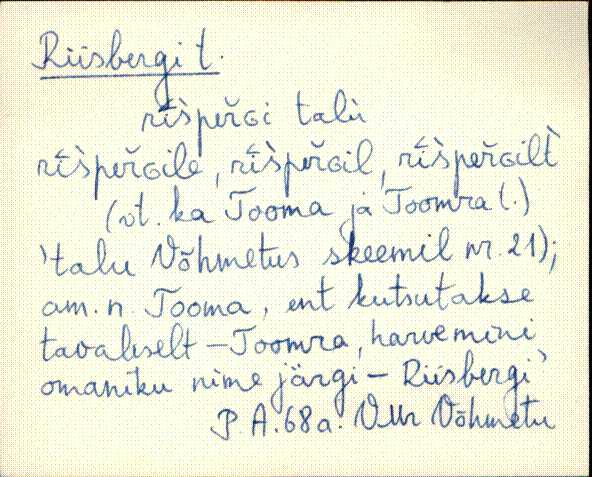 Riisbergi t.
rīs̀per̆Gi talù
rīs̀per̆Gile, rīs̀per̆Gil, rīs̀per̆Gilt̀
(vt. ka Tooma ja Toomra t.)
'talu Võhmetus skeemil nr. 21);
am. n. Tooma, ent kutsutakse
tavaliselt – Toomra, harvemini
omaniku nime järgi – Riisbergi'
P. A. 68a. VMr Võhmetu